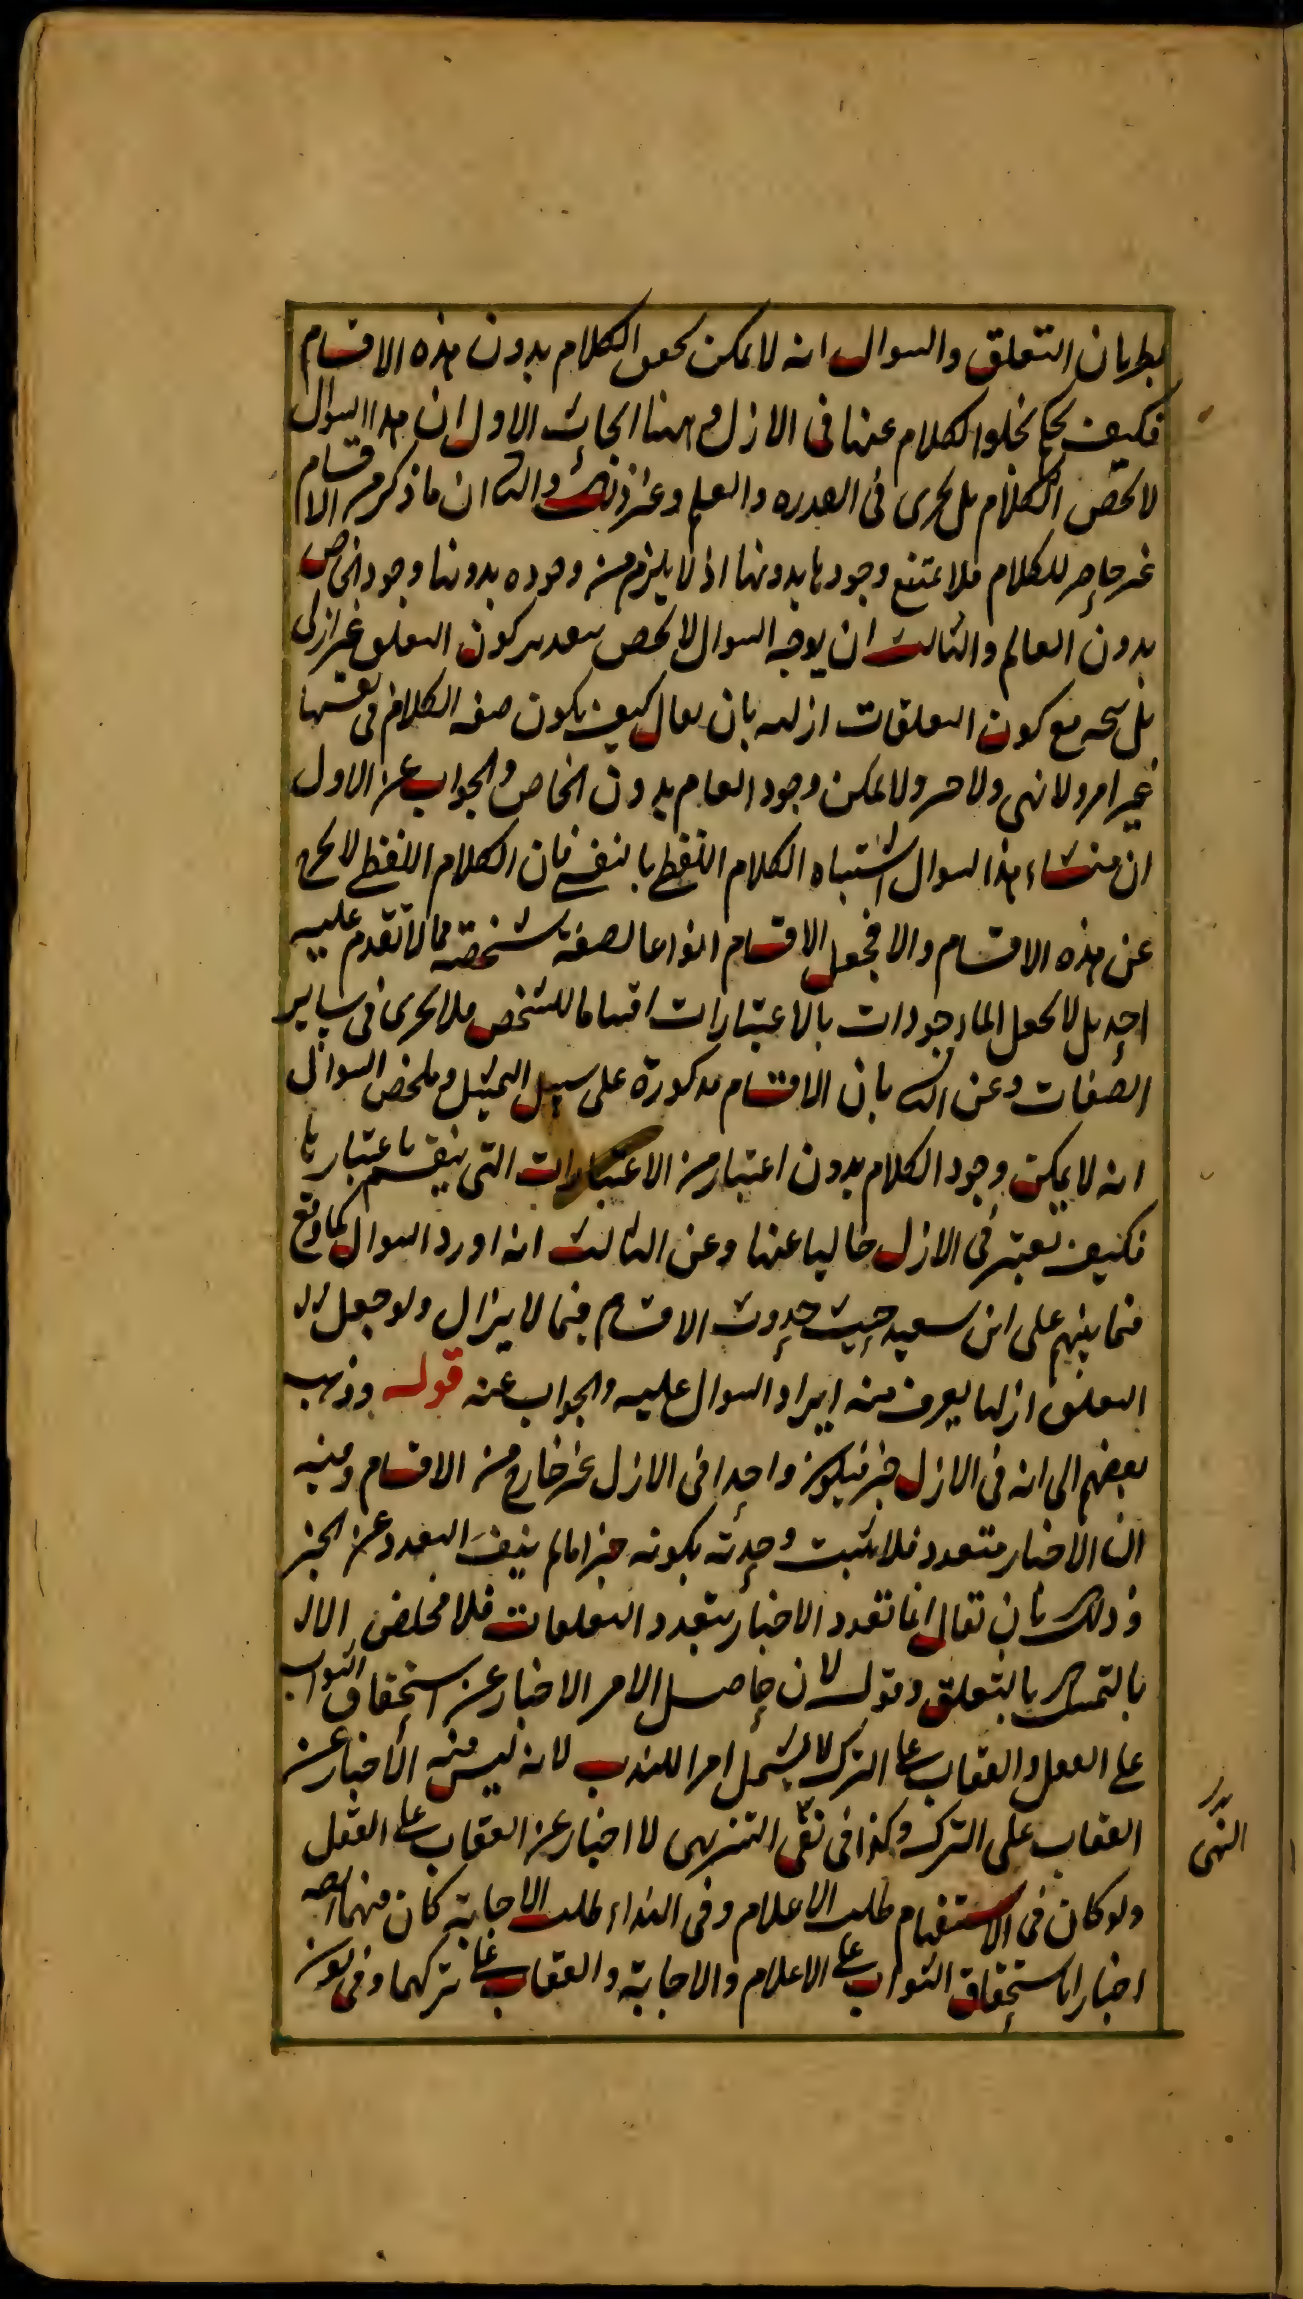 بطريان التعلق والسوال انه لا يمكن تحقق الكلام بدون هذه الاقسام
فكيف يحكم بخلو الكلام عنها فى الازل وههنا ابحاث الاول ان هذا السوال
لا يخص الكلام بل يجرى فى القدره والعلم وغير ذلك والثا ان ما ذكر من الاقسام
غير حاصر للكلام فلا يمتنع وجودها بدونها اذ لا يلزم من وجوده بدونها وجود الخاص
بدون العالم والثالث ان يوجه السوال لا يخص بتقدير كون التعلق غير ازلى
بل يتجه مع كون التعلقات ازليه بان يقال كيف يكون صفه الكلام فى نفسها
غير امر ولا نهى ولا خبر ولا يمكن وجود العام بدون الخاص والجواب عن الاول
ان منشاء هذا السوال اشتباه الكلام اللفظى بالنفسى فان الكلام اللفظى لا يخرج
عن هذه الاقسام والا فجعل الاقسام انواعا لصفة شخصية مما لا تقدم عليه
احد بل لا يجعل الموجودات بالاعتبارات اقساما للشخص فلا يجرى فى ساير
الصفات وعن الثا بان الاقسام مذكورة على سبيل التمثيل وملخص السوال
انه لا يمكن وجود الكلام بدون اعتبار من الاعتبارات التى ينقسم باعتبارها
فكيف يعتبر فى الازل خاليا عنها وعن الثالث انه اورد السوال كما وقع
فيما بينهم على ابن سعيد حيث حدوث الاقسام فيما لا يزال ولو جعل
التعلق ازليا يعرف منه ايراد السوال عليه والجواب عنه قوله وذهب
بعضهم الى انه فى الازل خبر فيكون واحدا فى الازل غير خارج من الاقسام وفيه
ان الاخبار متعدد فلا يثبت وحدته بكونه خبرا ما لم ينف التعدد عن الخبر
وذلك بان يقال انما تعدد الاخبار بتعدد التعلقات فلا مخلص الا
بالتمسك بالتعلق وقوله لان حاصل الامر الاخبار عن استحقاق الثواب
على الفعل والعقاب على الترك لا يشمل امرا للندب لانه ليس فيه الاخبار عن
العقاب على الترك وكذا فى نفى التنزيهى لا اخبار عن العقاب على الفعل
ولو كان فى الاستفهام طلب الاعلام وفى النداء طلب الاجابة كان فيهما ايضا
اخبارا باستحقاق الثواب على الاعلام والاجابة والعقاب على تركهما وفى كون
النهى